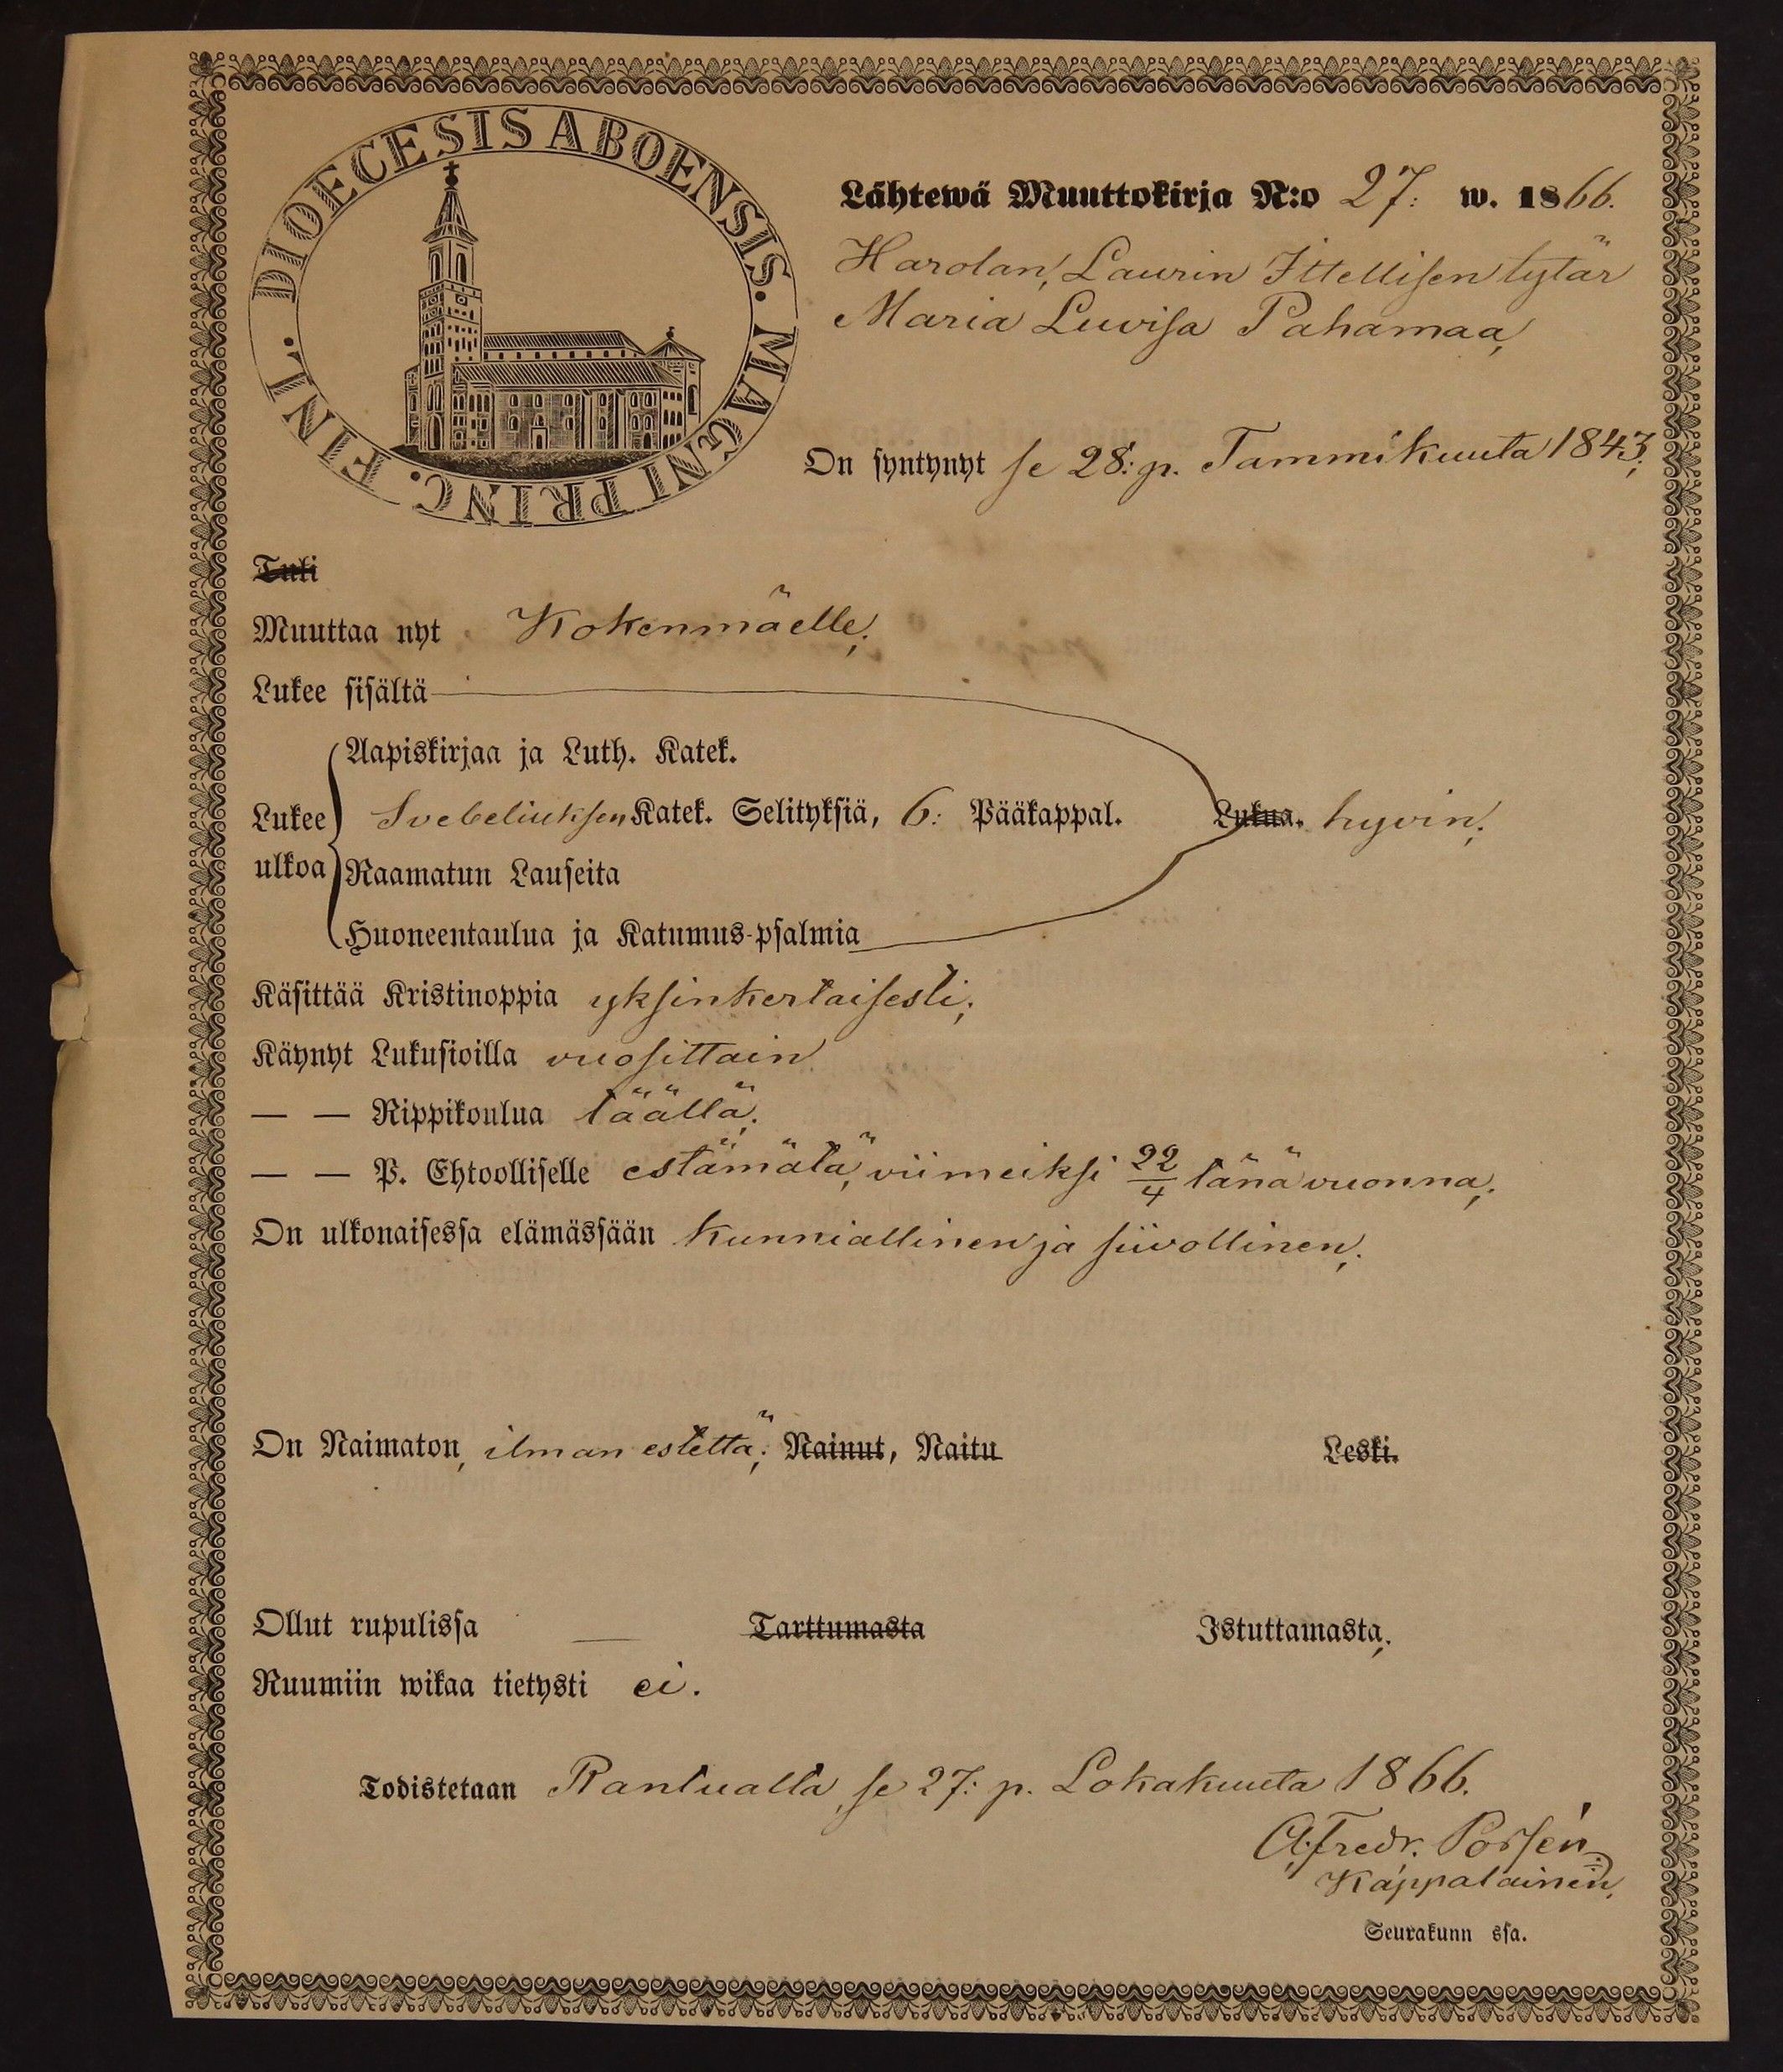 DIOECESIS ABOENSIS. MAGNI PRINC. FINL.
Lähtewä Muuttokirja N:o 27: w. 1866.
Harolan, Laurin Ittellisen tytär
Maria Luvisa Pahamaa,
On syntynyt se 28: p. Tammikuuta 1843;
Tuli
Muuttaa nyt Kokenmäelle;
Lukee sisältä
Aapiskirjaa ja Luth. Katek.
Lukee Svebeliuksen Katek. Selityksiä, 6: Pääkappal. Lukua. hyvin;
ulkoa Raamatun Lauseita
Huoneentaulua ja Katumus-psalmia
Käsittää Kristinoppia yksinkertaisesti;
Käynyt Lukusioilla vuosittain
— — Rippikoulua täällä;
— — P. Ehtoolliselle estämätä, viimeiksi 22/4 tänä vuonna;
On ulkonaisessa elämässään kunniallinen ja siivollinen;
On Naimaton, ilman estettä; Nainut, Naitu Leski.
Ollut rupulissa — Tarttumasta Istuttamasta;
Ruumiin wikaa tietysti ei.
Todistetaan Rantualla, se 27: p. Lokakuuta 1866.
A. Fredr. Porsén
Kappalainen,
Seurakunn ssa.